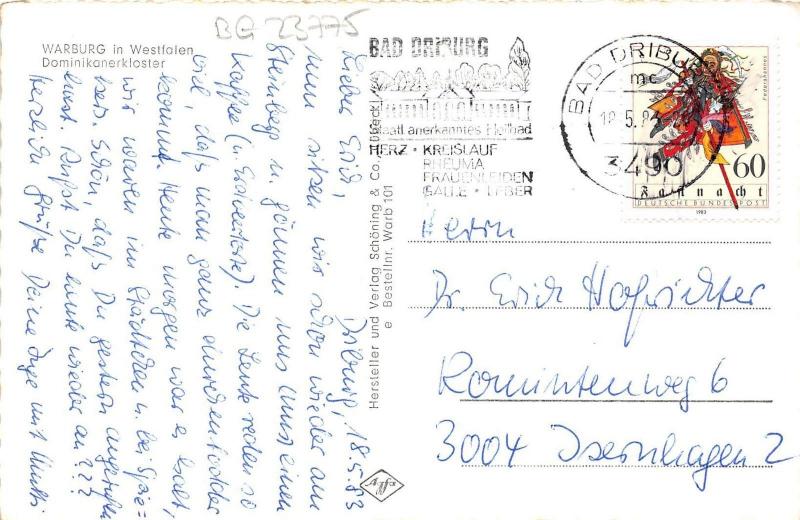 BG 23775
WARBURG in Westfalen
Dominikanerkloster
Driburg, 18.5.83
Lieber Erich,
nun sitzen wir schon wieder am
Steinberg u. gönnen uns (uns) einen
Kaffee (in Eßservietten). Die Leute reden so
viel, daß man ganz durcheinander
kommt. Heute morgen war es kalt,
wir waren im Städtchen u. bei Spie=
ker. Schön, daß Du gestern angerufen
hast. Rufst Du heute wieder an???
Herzliche Grüße Deine Inge mit Mutti
Hersteller und Verlag Schöning & Co., Lübeck
e Bestellnr. Warb 101
Agfa
BAD DRIBURG
Staatl anerkanntes Heilbad
HERZ • KREISLAUF
RHEUMA
FRAUENLEIDEN
GALLE • LEBER
BAD DRIBURG
mc
18.5.83
3490
Federahannes
60
Fastnacht
DEUTSCHE BUNDESPOST
1983
Herrn
Dr. Erich Hofrichter
Romintenweg 6
3004 Isernhagen 2